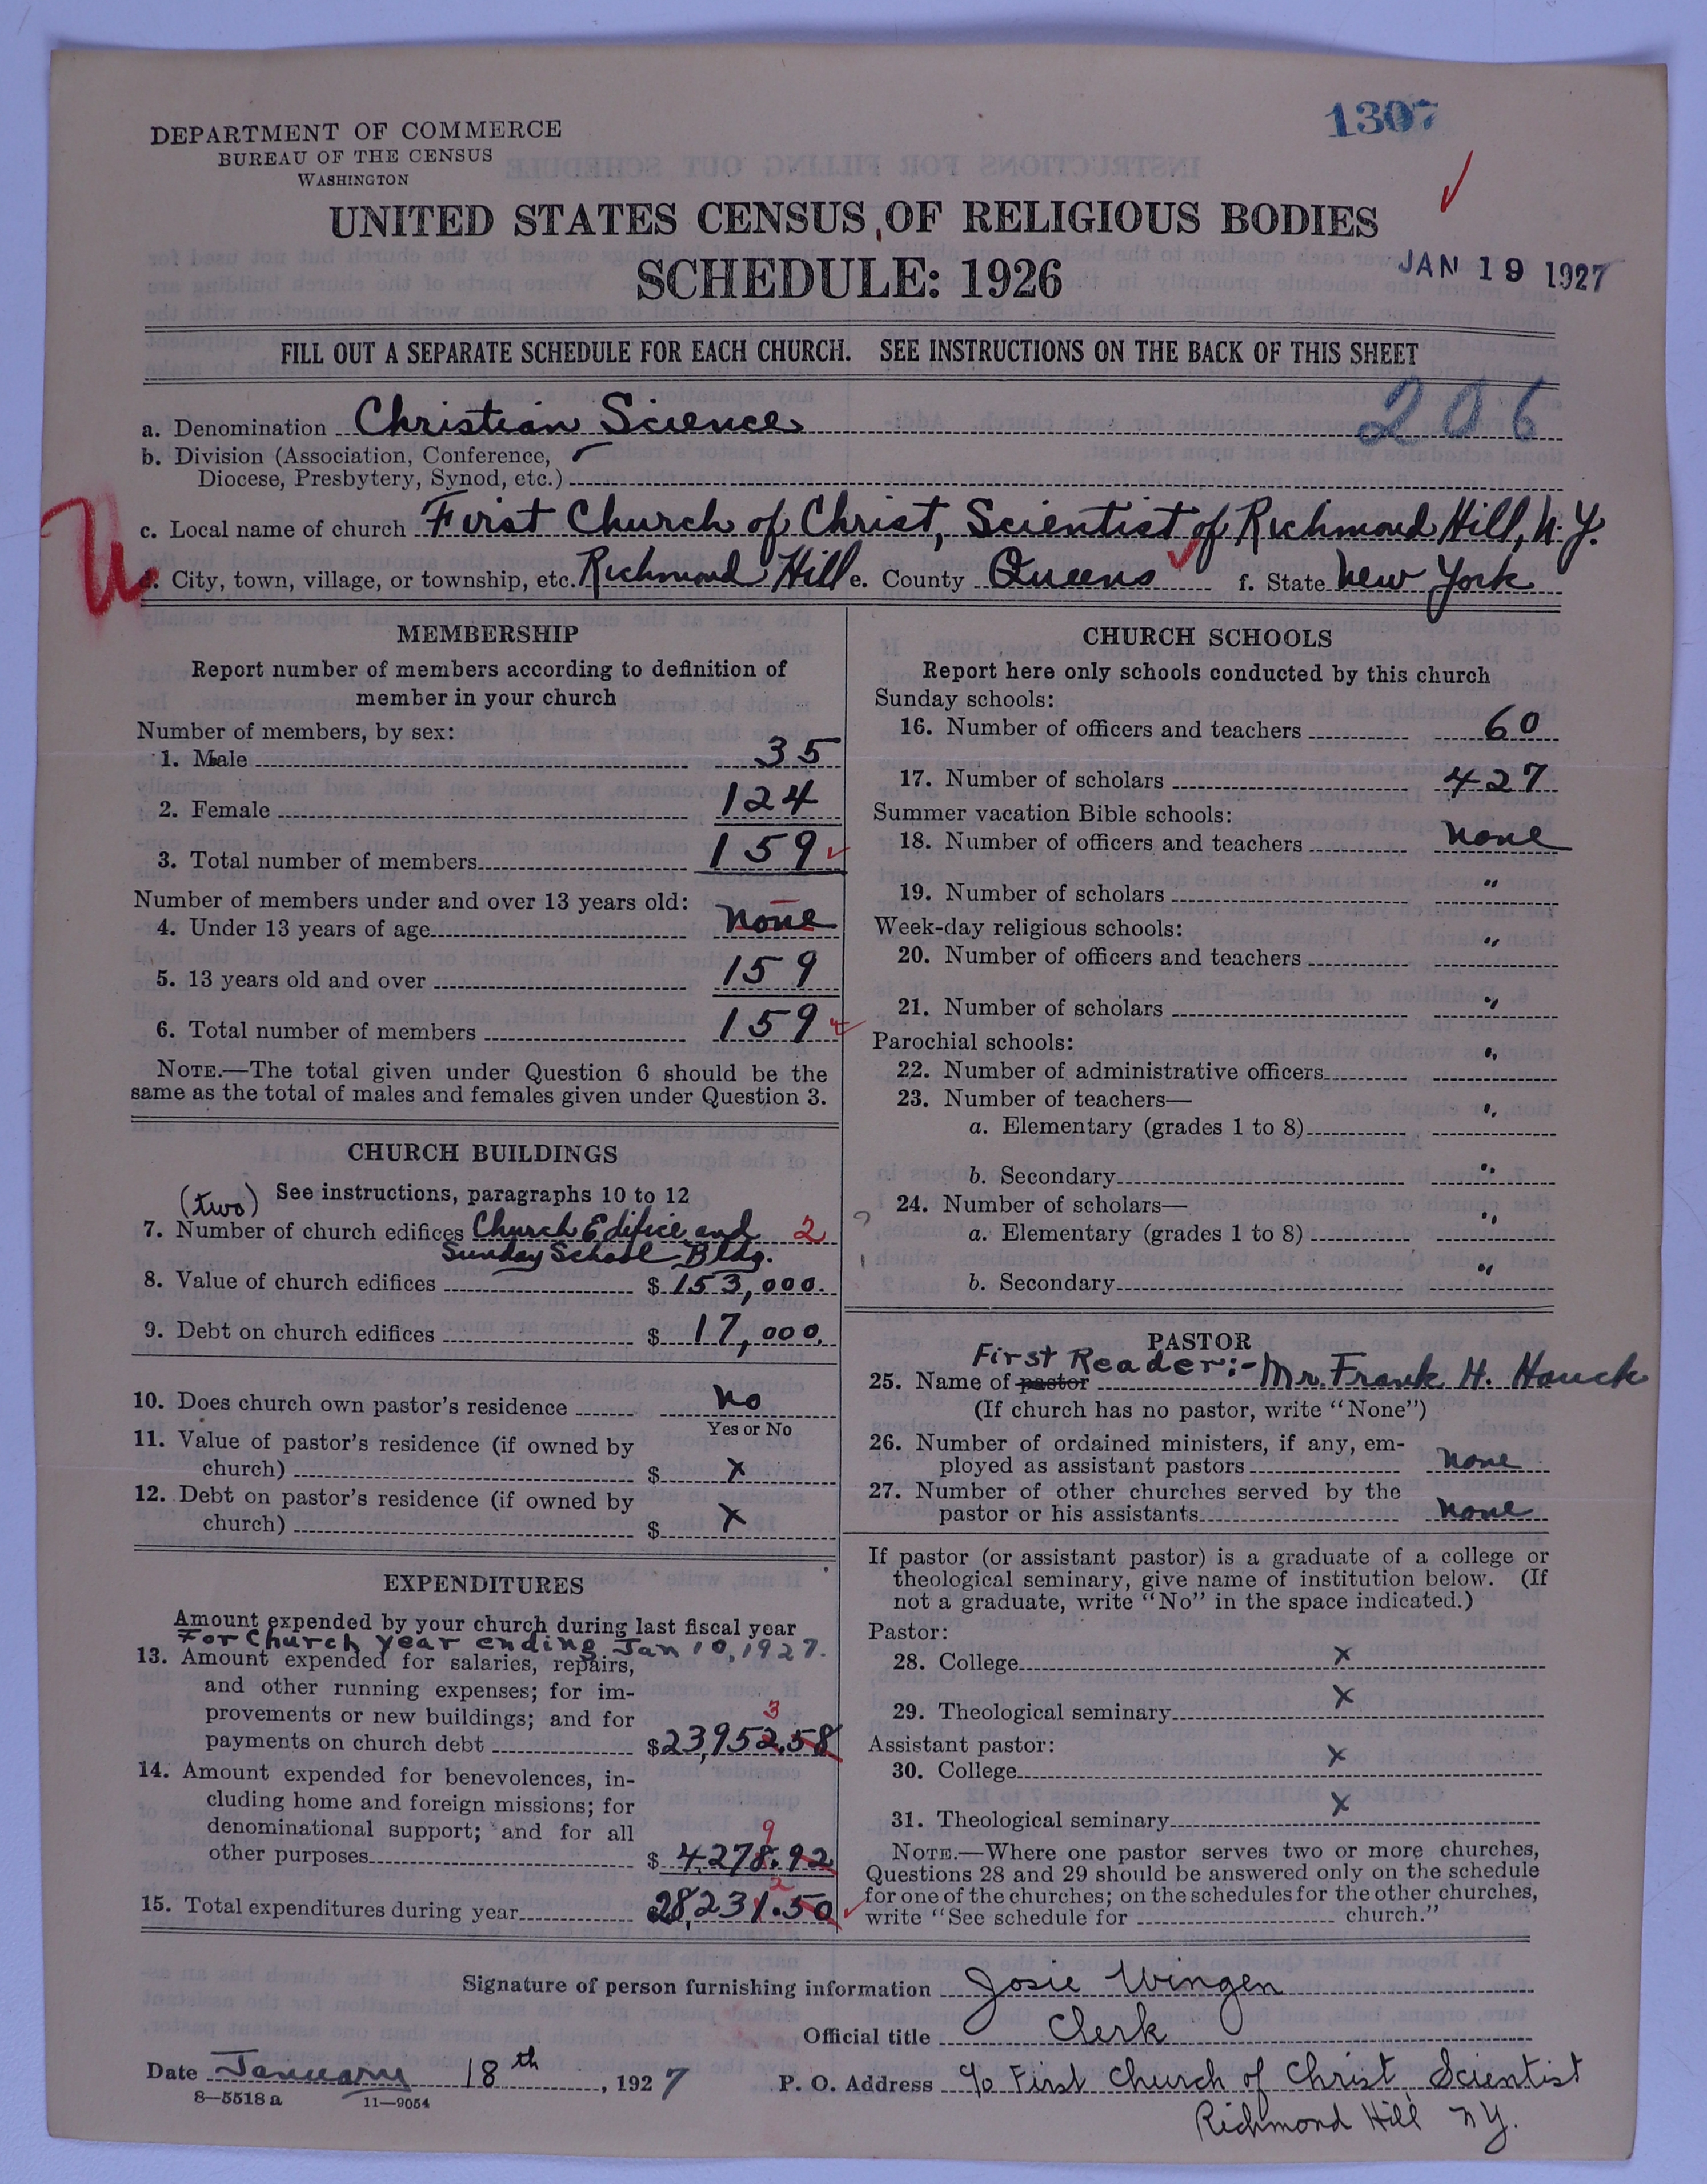 1307
DEPARTMENT OF COMMERCE
BUREAU OF THE CENSUS
WASHINGTON
UNITED STATES CENSUS OF RELIGIOUS BODIES
SCHEDULE: 1926
JAN 19 1927
FILL OUT A SEPARATE SCHEDULE FOR EACH CHURCH. SEE INSTRUCTIONS ON THE BACK OF THIS SHEET
206
a. Denomination Christian Science
b. Division (Association, Conference,
Diocese, Presbytery, Synod, etc.)
c. Local name of church First Church of Christ, Scientist of Richmond Hill, N.Y.
d. City, town, village, or township, etc. Richmond Hill e. County Queens f. State New York
MEMBERSHIP
Report number of members according to definition of
member in your church
Number of members, by sex:
1. Male 35
2. Female 124
3. Total number of members 159
Number of members under and over 13 years old:
4. Under 13 years of age none
5. 13 years old and over 159
6. Total number of members 159
NOTE.—The total given under Question 6 should be the
same as the total of males and females given under Question 3.
CHURCH BUILDINGS
(two) See instructions, paragraphs 10 to 12
7. Number of church edifices Church Edifice and 2
Sunday School Bldg.
8. Value of church edifices $153,000.
9. Debt on church edifices $17,000.
10. Does church own pastor's residence No
Yes or No
11. Value of pastor's residence (if owned by
church) $ X
12. Debt on pastor's residence (if owned by
church) $ X
EXPENDITURES
Amount expended by your church during last fiscal year
For Church year ending Jan 10, 1927.
13. Amount expended for salaries, repairs,
and other running expenses; for im-
provements or new buildings; and for
3
payments on church debt $23,952.58
14. Amount expended for benevolences, in-
cluding home and foreign missions; for
denominational support; and for all
9
other purposes $4,278.92
2
15. Total expenditures during year 28,231.50
CHURCH SCHOOLS
Report here only schools conducted by this church
Sunday schools:
16. Number of officers and teachers 60
17. Number of scholars 427
Summer vacation Bible schools:
18. Number of officers and teachers none
19. Number of scholars "
Week-day religious schools:
20. Number of officers and teachers "
21. Number of scholars "
Parochial schools:
22. Number of administrative officers "
23. Number of teachers—
a. Elementary (grades 1 to 8) "
b. Secondary "
24. Number of scholars—
a. Elementary (grades 1 to 8) "
b. Secondary "
PASTOR
First Reader:-
25. Name of pastor Mr. Frank H. Hauck
(If church has no pastor, write "None")
26. Number of ordained ministers, if any, em-
ployed as assistant pastors none
27. Number of other churches served by the
pastor or his assistants none
If pastor (or assistant pastor) is a graduate of a college or
theological seminary, give name of institution below. (If
not a graduate, write "No" in the space indicated.)
Pastor:
28. College X
29. Theological seminary X
Assistant pastor:
30. College X
31. Theological seminary X
NOTE.—Where one pastor serves two or more churches,
Questions 28 and 29 should be answered only on the schedule
for one of the churches; on the schedules for the other churches,
write "See schedule for church."
Signature of person furnishing information Josie Wingen
Official title Clerk
Date January 18th, 1927 P. O. Address c/o First Church of Christ Scientist
Richmond Hill N.Y.
8—5518a 11—9054